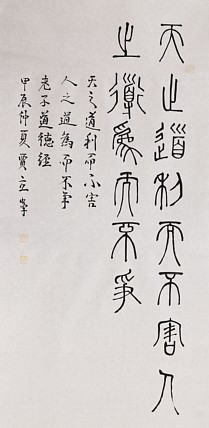 天之道利而不害人
之道為而不爭
天之道利而不害
人之道為而不争
老子道德經
甲辰仲夏賈立